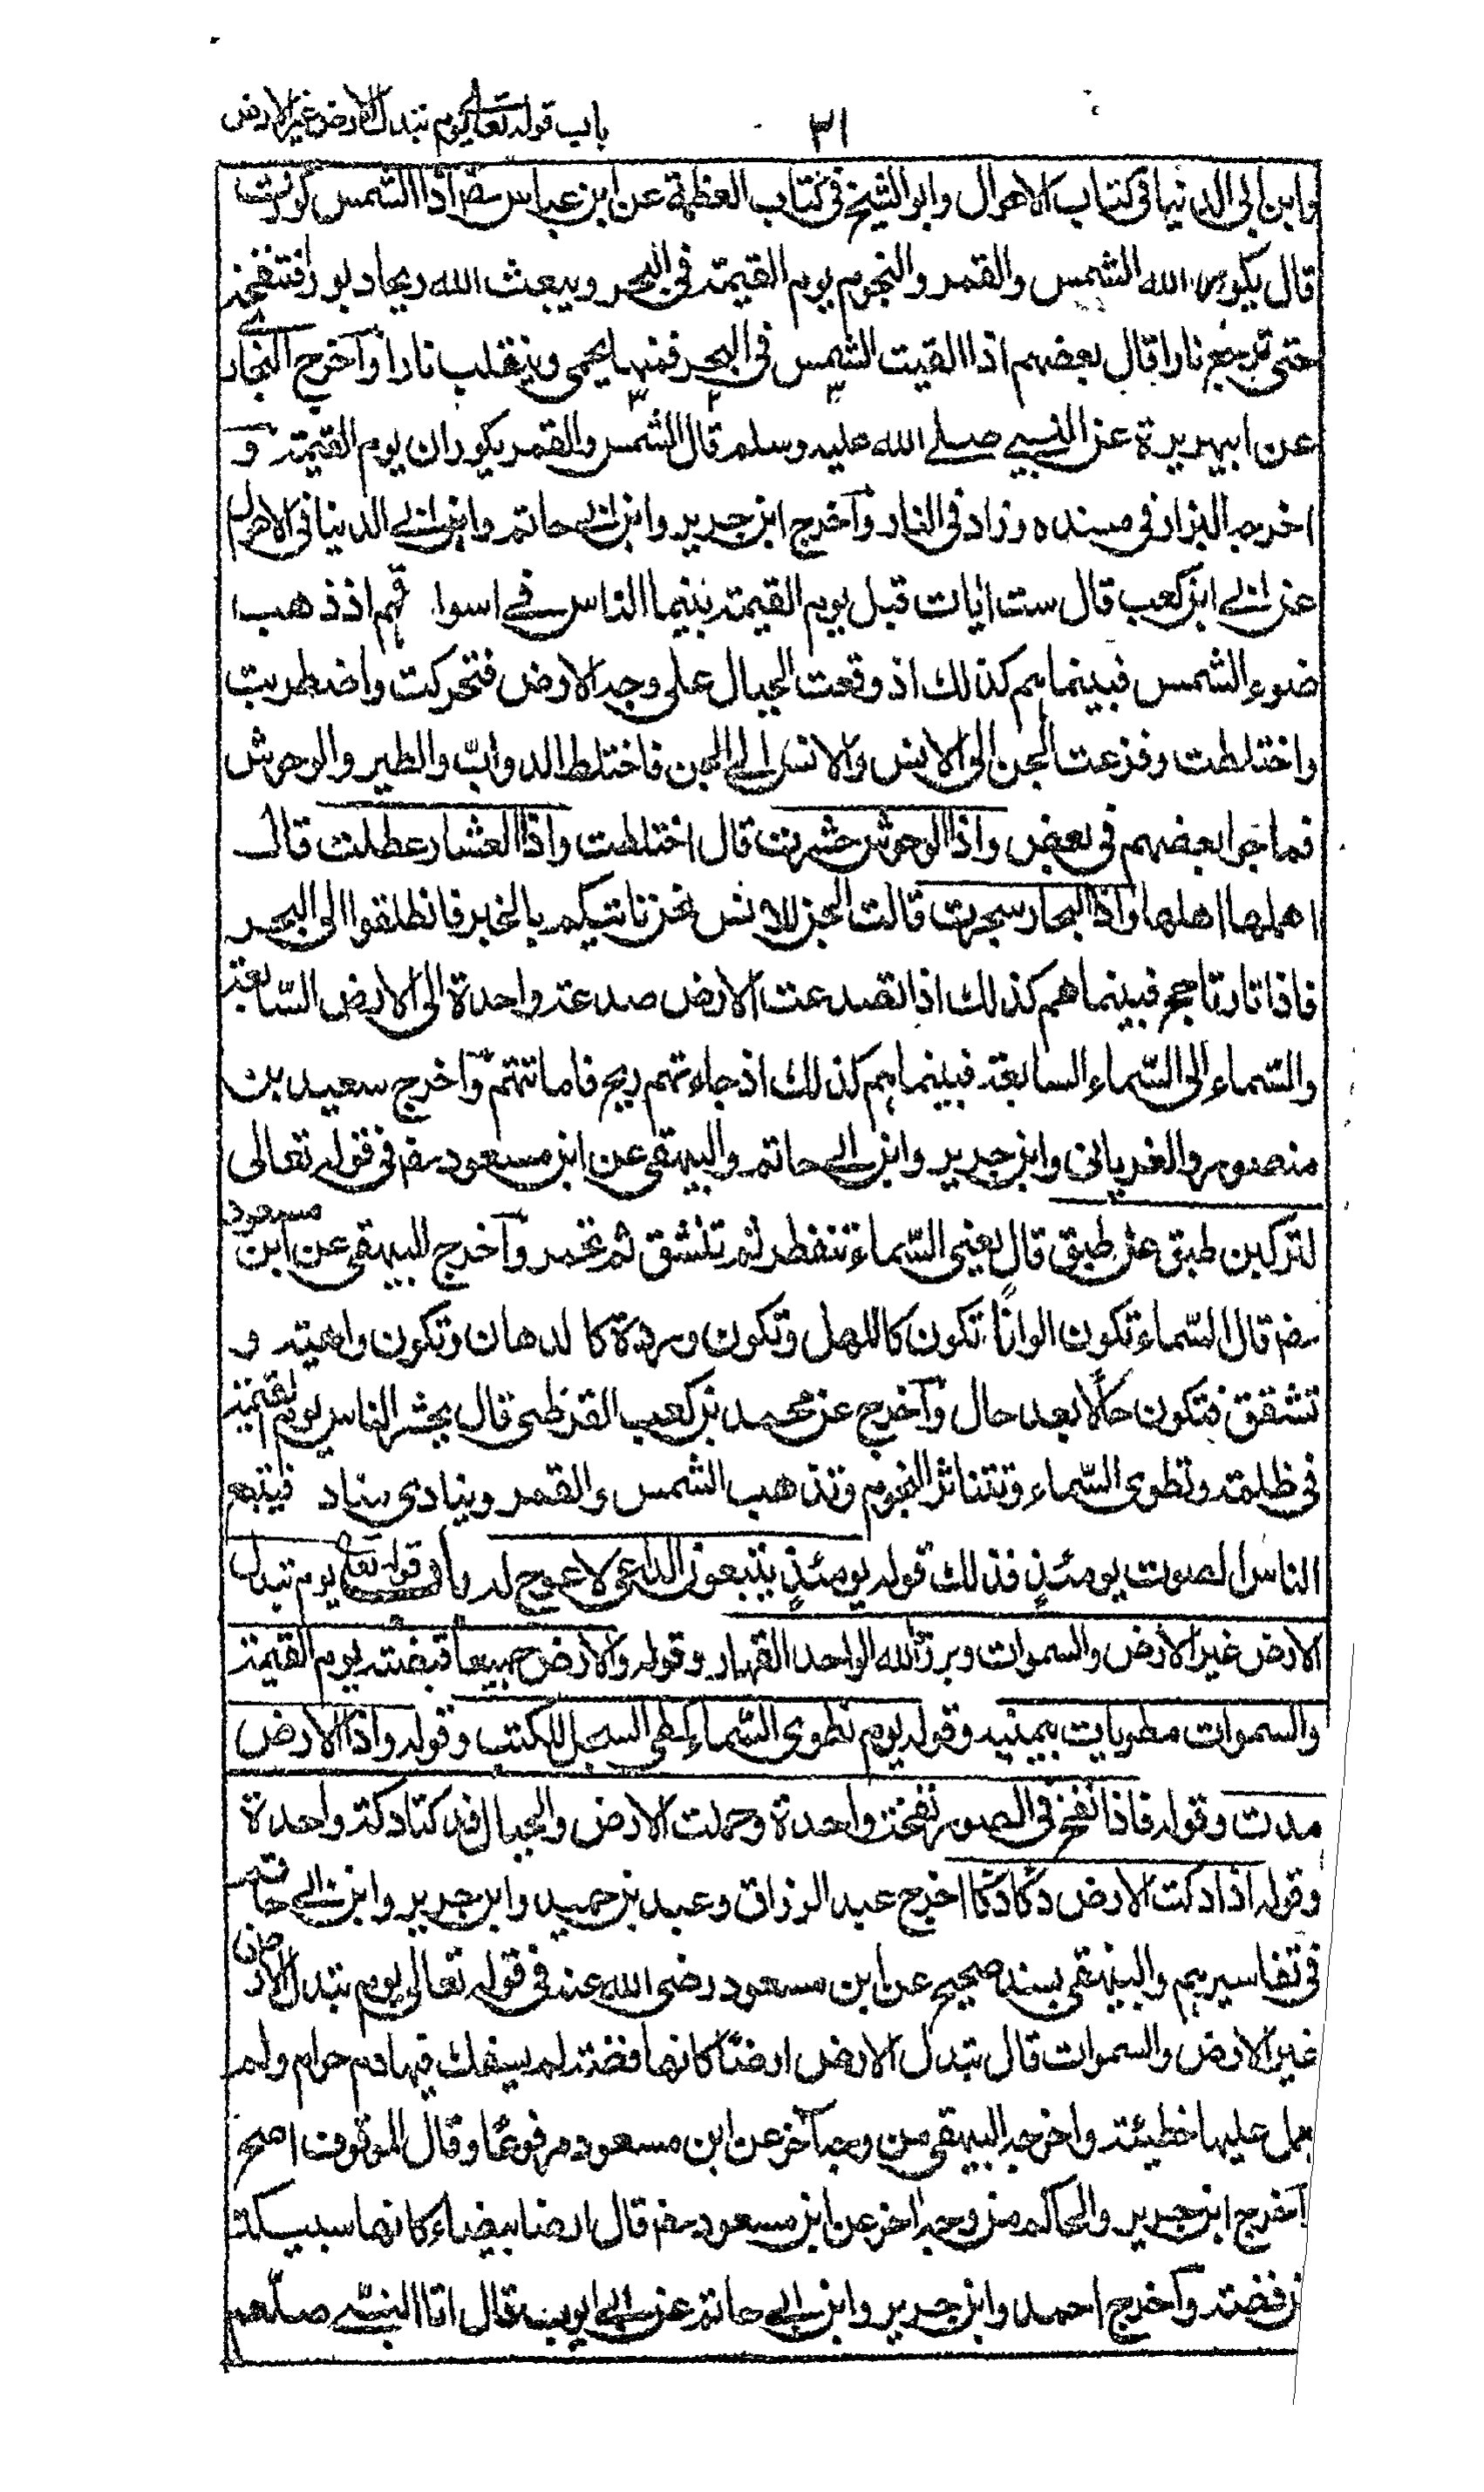 باب قوله تعالى يوم تبدل الارض غير الارض
٣١
وابن ابى الدنيا فى كتاب الاهوال وابو الشيخ فى كتاب العظمة عن ابن عباس رضـ اذا الشمس كورت
قال يكور الله الشمس والقمر والنجوم يوم القيمة فى البحر ويبعث الله ريحا دبورا فتنفخه
حتى ترجع نارا قال بعضهم اذا القيت الشمس فى البحر فمنها يحمى وينقلب نارا وآخرج البخارى
عن ابيهريرة عن النبي صلے الله عليه وسلم قال الشمس والقمر يكوران يوم القيمة و
اخرجه البزار فى مسنده وزاد فى النار وآخرج ابن جرير وابن ابي حاتم وابن ابي الدنيا فى الاهوال
عن ابي ابن كعب قال ست ايات قبل يوم القيمة بينما الناس في اسوا قهم اذ ذهب
ضوء الشمس فبينما هم كذلك اذ وقعت الجبال على وجه الارض فتحركت واضطربت
واختلطت وفزعت الجن الى الانس والانس الى الجن فاختلط الدوابّ والطير والوحوش
فماجوا بعضهم فى بعض واذا الوحوش حشرت قال اختلطت واذا العشار عطلت قال
اهملها اهلها واذا البحار سجرت قالت الجن للانس نحن ناتيكم بالخبر فانطلقوا الى البحر
فاذا نار تاجج فبينما هم كذلك اذا نصدعت الارض صدعة واحدة الى الارض السّابعة
والسّماء الى السّماء السابعة فبينما هم كذلك اذ جاءتهم ريح فاماتتهم وآخرج سعيد بن
منصور والفريابى وابن جرير وابن ابي حاتم والبيهقى عن ابن مسعود رضـ فى قوله تعالى
لتركبن طبق عن طبق قال يعنى السّماء تنفطر ثم تنشق ثم تحمر وآخرج البيهقى عن ابن مسعود
رضـ قال السّماء تكون الوانًا تكون كاالمهل وتكون وردة كا لدهان وتكون واهية و
تشقق فتكون حالًا بعد حال وآخرج عن محمد بن كعب القرظى قال يحشر الناس يوم القيمة
فى ظلمة وتطوى السّماء وتتناثر النجوم وتذهب الشمس والقمر وينادى مناد فيتبع
الناس الصوت يومئذٍ فذلك قوله يومئذٍ يتبعون الداعى لا عوج له باب قوله تعالى يوم تبدل
الارض غير الارض والسموات وبرز لله الواحد القهار وقوله والارض جميعا قبضته يوم القيمة
والسموات مطويات بيمينه وقوله يوم نطوى السّماء كطى السجل للكتب وقوله واذا الارض
مدت وقوله فاذا نفخ فى الصور نفخة واحدة وحملت الارض والجبال فدكتا دكة واحدة
وقوله اذا دكت الارض دكا دكا اخرج عبد الرزاق وعبد بن حميد وابن جرير وابن ابي حاتم
فى تفاسيرهم والبيهقى بسند صحيح عن ابن مسعود رضى الله عنه فى قوله تعالى يوم تبدل الارض
غير الارض والسموات قال تبدل الارض ارضًا كانها فضة لم يسفك فيها دم حرام ولم
يعمل عليها خطيئة واخرجه البيهقى من وجه آخر عن ابن مسعود مرفوعًا وقال الموقوف اصح
آخرج ابن جرير والحاكم من وجه اخر عن ابن مسعود رضـ قال ارضا بيضاء كانها سبيكة
من فضة وآخرج احمد وابن جرير وابن ابي حاتم عن ابي ايوب قال اتا النبي صلعم